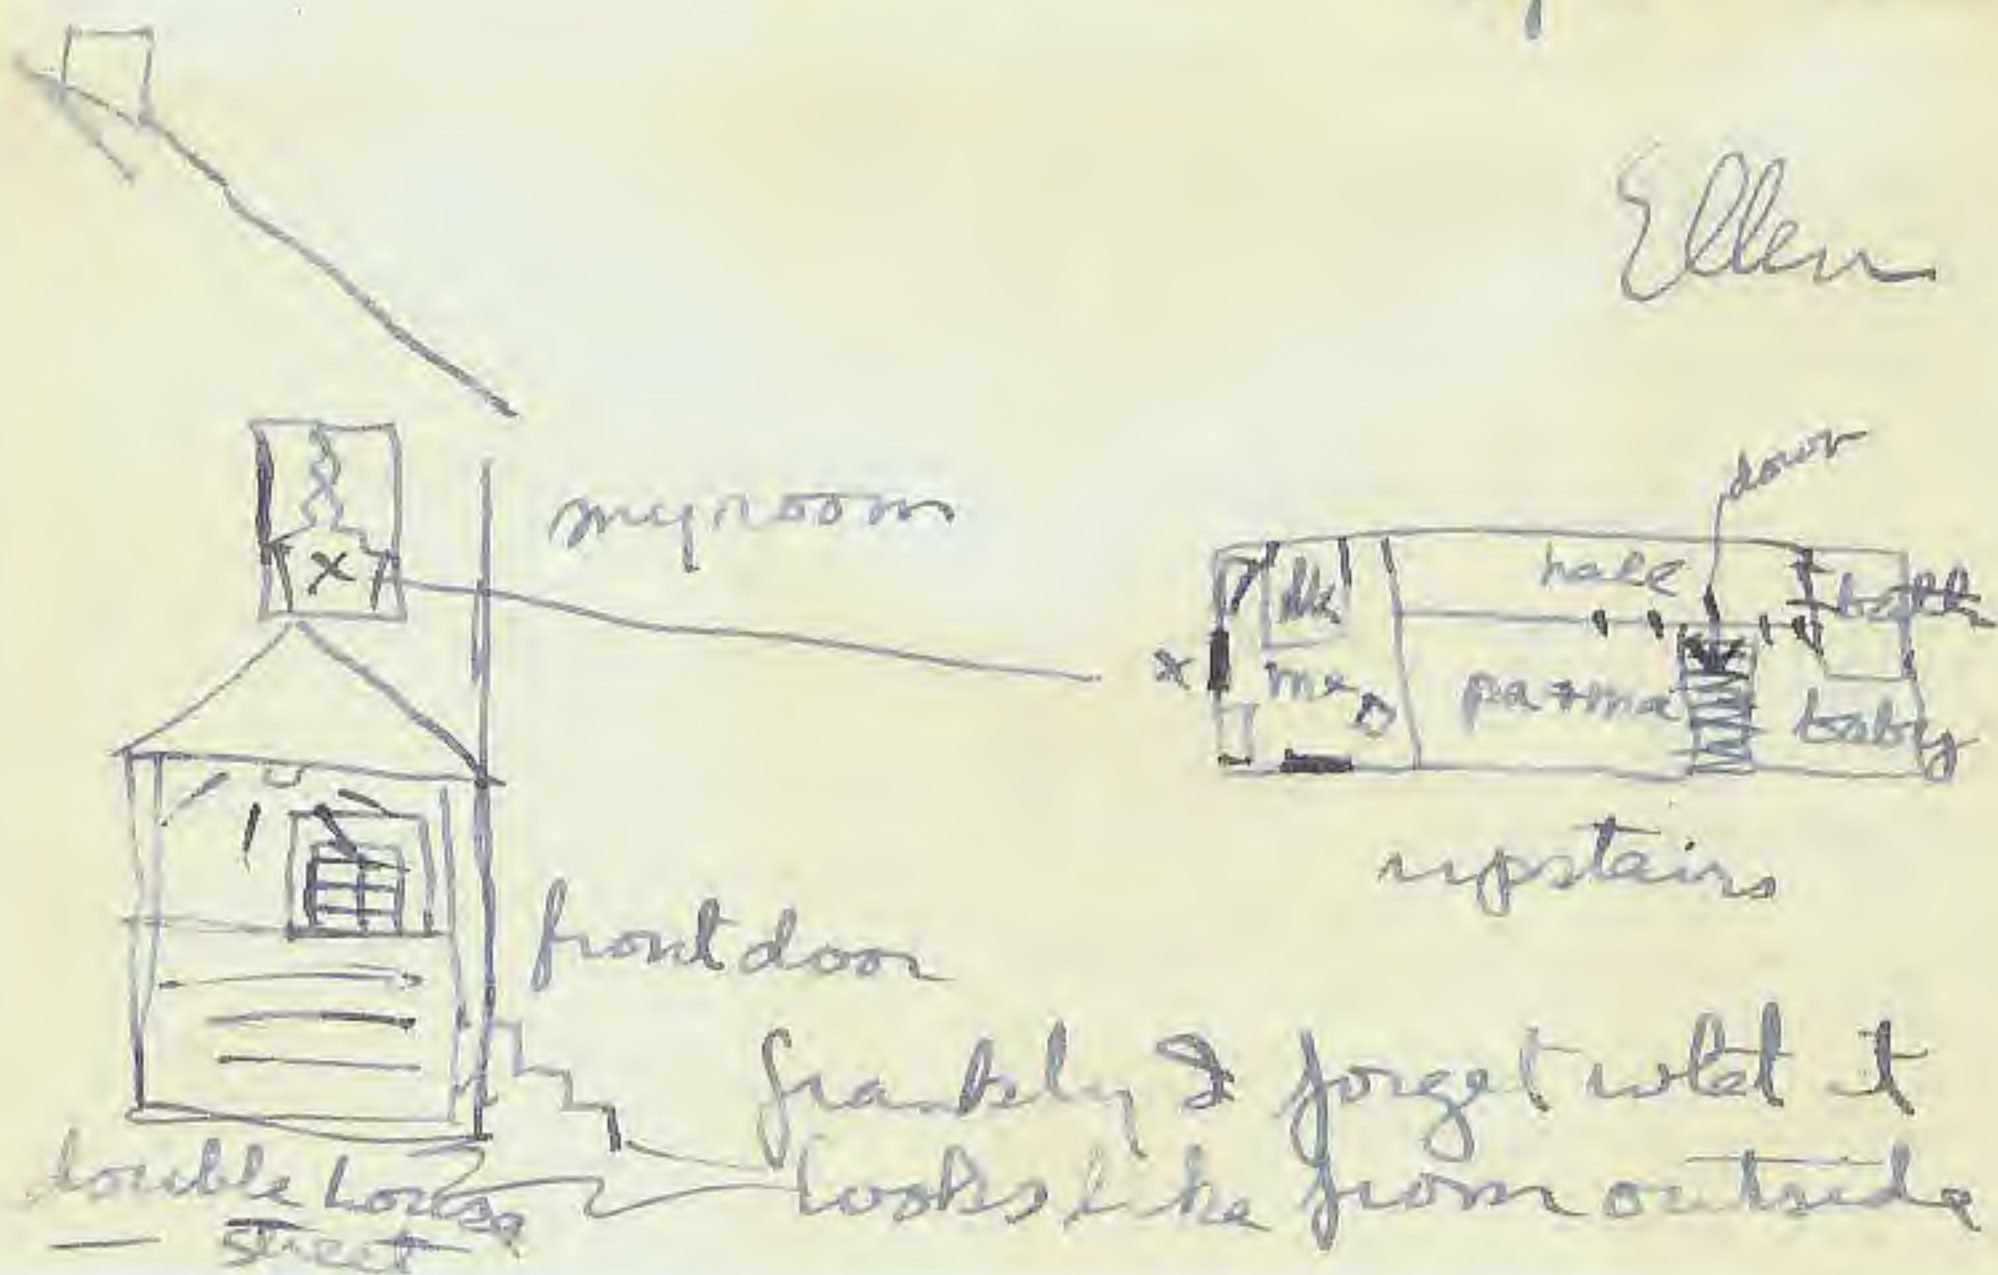 Ellen
my room
x
down
hall
bath
x
me
pa + ma
baby
upstairs
front door
frankly I forget what it
looks like from outside
double house
street